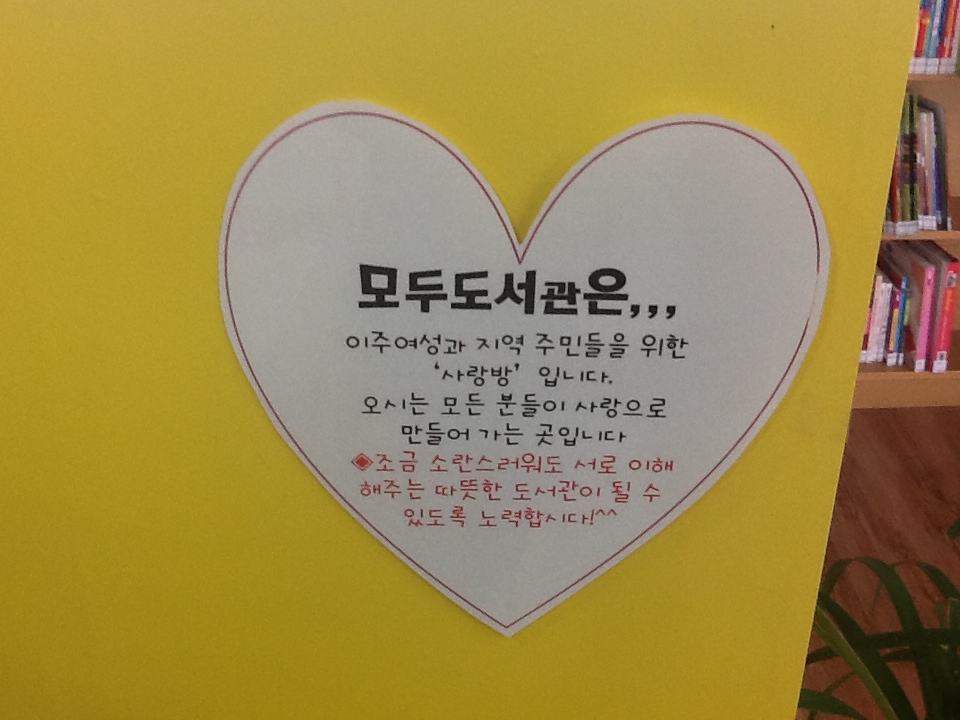 모두도서관은,,,
이주여성과 지역 주민들을 위한
'사랑방' 입니다.
오시는 모든 분들이 사랑으로
만들어 가는 곳입니다
◈조금 소란스러워도 서로 이해
해주는 따뜻한 도서관이 될 수
있도록 노력합시다!^^